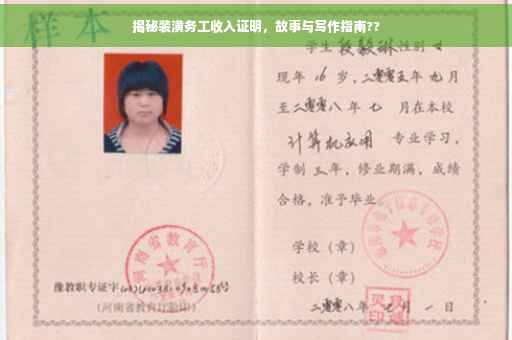 揭秘装潢务工收入证明，故事与写作指南??
样本
学生段毅琳性别女
现年16岁，二零零五年九月
至二零零八年七月在本校
计算机应用 专业学习，
学制三年，修业期满，成绩
合格，准予毕业
学校（章）
校长（章）
二零零八年 月一日
河南省教育厅
豫教职专证字
（河南省教育厅验印）